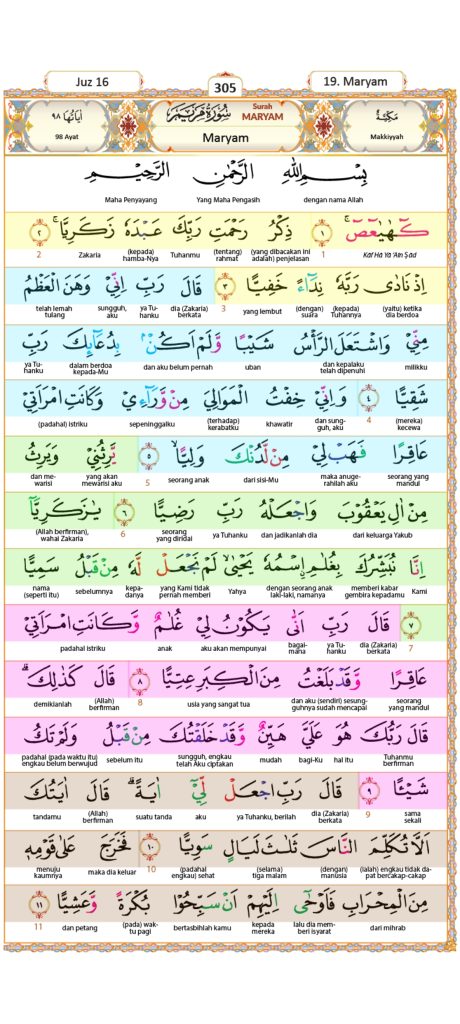 Juz 16
305
19. Maryam
اٰيَاتُهَا ٩٨
98 Ayat
سُوْرَةُ مَرْيَمَ
Surah MARYAM
Maryam
مَكِّيَّةٌ
Makkiyyah
بِسْمِ اللّٰهِ الرَّحْمٰنِ الرَّحِيْمِ
dengan nama Allah Yang Maha Pengasih Maha Penyayang
كۤهٰيٰعۤصۤ ۚ ١ ذِكْرُ رَحْمَتِ رَبِّكَ عَبْدَهٗ زَكَرِيَّا ۚ ٢
Kāf Hā Yā 'Aīn Ṣād 1 (yang dibacakan ini adalah) penjelasan (tentang) rahmat Tuhanmu (kepada) hamba-Nya Zakaria 2
اِذْ نَادٰى رَبَّهٗ نِدَاۤءً خَفِيًّا ٣ قَالَ رَبِّ اِنِّيْ وَهَنَ الْعَظْمُ
(yaitu) ketika dia berdoa (kepada) Tuhannya (dengan) suara yang lembut 3 dia (Zakaria) berkata ya Tu-hanku sungguh, aku telah lemah tulang
مِنِّيْ وَاشْتَعَلَ الرَّأْسُ شَيْبًا وَّلَمْ اَكُنْۢ بِدُعَاۤىِٕكَ رَبِّ
milikku dan kepalaku telah dipenuhi uban dan aku belum pernah dalam berdoa kepada-Mu ya Tu-hanku
شَقِيًّا ٤ وَاِنِّيْ خِفْتُ الْمَوَالِيَ مِنْ وَّرَاۤءِيْ وَكَانَتِ امْرَاَتِيْ
(mereka) kecewa 4 dan sung-guh, aku khawatir (terhadap) kerabatku sepeninggalku (padahal) istriku
عَاقِرًا فَهَبْ لِيْ مِنْ لَّدُنْكَ وَلِيًّا ۙ ٥ يَّرِثُنِيْ وَيَرِثُ
seorang yang mandul maka anuge-rahilah aku dari sisi-Mu seorang anak 5 yang akan mewarisi aku dan me-warisi
مِنْ اٰلِ يَعْقُوْبَ وَاجْعَلْهُ رَبِّ رَضِيًّا ٦ يٰزَكَرِيَّآ
dari keluarga Yakub dan jadikanlah dia ya Tuhanku seorang yang diridai 6 (Allah berfirman), wahai Zakaria
اِنَّا نُبَشِّرُكَ بِغُلٰمِ ِۨاسْمُهٗ يَحْيٰىۙ لَمْ نَجْعَلْ لَّهٗ مِنْ قَبْلُ سَمِيًّا
Kami memberi kabar gembira kepadamu dengan seorang anak laki-laki, namanya Yahya yang Kami tidak pernah memberi kepa-danya sebelumnya nama (seperti itu)
٧ قَالَ رَبِّ اَنّٰى يَكُوْنُ لِيْ غُلٰمٌ وَّكَانَتِ امْرَاَتِيْ
7 dia (Zakaria) berkata ya Tu-hanku bagai-mana aku akan mempunyai anak padahal istriku
عَاقِرًا وَّقَدْ بَلَغْتُ مِنَ الْكِبَرِ عِتِيًّا ٨ قَالَ كَذٰلِكَۗ
seorang yang mandul dan aku (sendiri) sesung-guhnya sudah mencapai usia yang sangat tua 8 (Allah) berfirman demikianlah
قَالَ رَبُّكَ هُوَ عَلَيَّ هَيِّنٌ وَّقَدْ خَلَقْتُكَ مِنْ قَبْلُ وَلَمْ تَكُ
Tuhanmu berfirman hal itu bagi-Ku mudah sungguh, engkau telah Aku ciptakan sebelum itu padahal (pada waktu itu) engkau belum berwujud
شَيْـًٔا ٩ قَالَ رَبِّ اجْعَلْ لِّيْٓ اٰيَةً ۗ قَالَ اٰيَتُكَ
sama sekali 9 dia (Zakaria) berkata ya Tuhanku, berilah aku suatu tanda (Allah) berfirman tandamu
اَلَّا تُكَلِّمَ النَّاسَ ثَلٰثَ لَيَالٍ سَوِيًّا ١٠ فَخَرَجَ عَلٰى قَوْمِهٖ
(ialah) engkau tidak da-pat bercakap-cakap (dengan) manusia (selama) tiga malam (padahal engkau) sehat 10 maka dia keluar menuju kaumnya
مِنَ الْمِحْرَابِ فَاَوْحٰٓى اِلَيْهِمْ اَنْ سَبِّحُوْا بُكْرَةً وَّعَشِيًّا ١١
dari mihrab lalu dia mem-beri isyarat kepada mereka bertasbihlah kamu (pada) wak-tu pagi dan petang 11